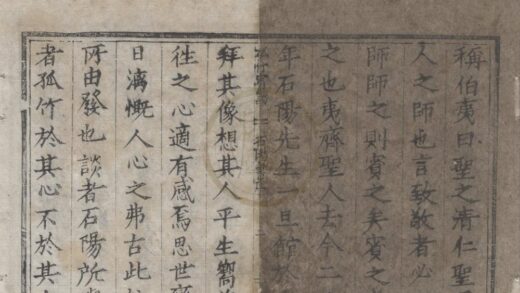 稱伯夷曰聖之清仁聖
人之師也言致敬者必
師師之則賓之矣賓之
之也夷齊聖人去今二
年石陽先生一旦館於
拜其像想其人平生嚮
徃之心適有感焉思世
日漓慨人心之弗古此
所由發也談者石陽所
者孤竹於其心不於其人